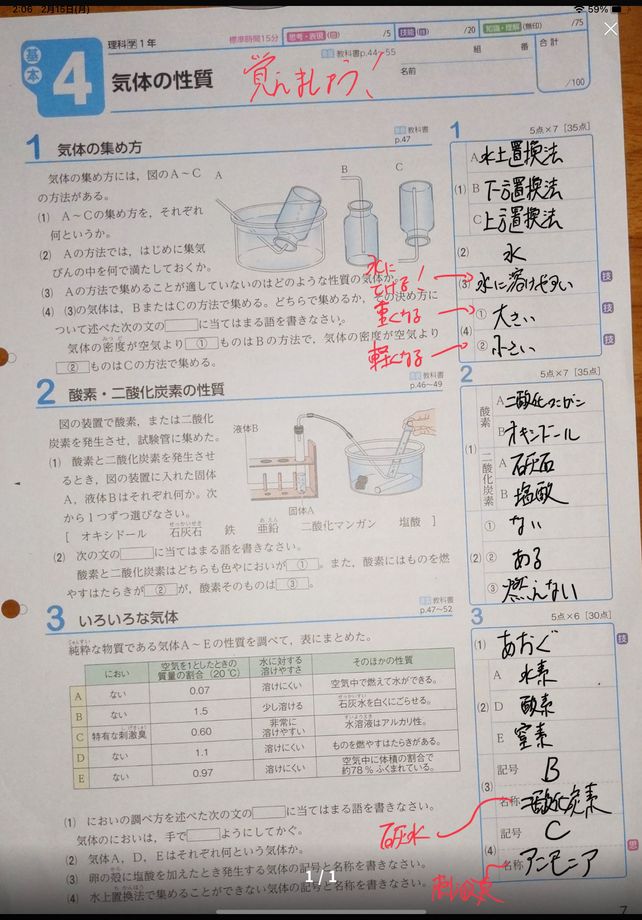 2:06 2月15日(月)
59%
基本
4
理科学1年
気体の性質
標準時間15分
思考・表現
/5
技能
/20
知識・理解(無印)
/75
教科書p.44~55
組 番
名前
合計
/100
覚えましょう!
1 気体の集め方
教科書
p.47
気体の集め方には,図のA~C
の方法がある。
(1) A~Cの集め方を,それぞれ
何というか。
(2) Aの方法では,はじめに集気
びんの中を何で満たしておくか。
(3) Aの方法で集めることが適していないのはどのような性質の気体か。
(4) (3)の気体は,BまたはCの方法で集める。どちらで集めるか,その決め方に
ついて述べた次の文の に当てはまる語を書きなさい。
気体の密度が空気より ① ものはBの方法で,気体の密度が空気より
みつど
② ものはCの方法で集める。
A
B
C
水に
とける!
重くなる
軽くなる
1
5点×7 [35点]
(1)
A 水上置換法
B 下方置換法
C 上方置換法
(2) 水
(3) 水に溶けやすい
技
(4)
① 大きい
技
② 小さい
技
2 酸素・二酸化炭素の性質
教科書
p.46~49
図の装置で酸素,または二酸化
炭素を発生させ,試験管に集めた。
(1) 酸素と二酸化炭素を発生させ
るとき,図の装置に入れた固体
A,液体Bはそれぞれ何か。次
から1つずつ選びなさい。
せっかいせき
あえん
[ オキシドール 石灰石 鉄 亜鉛 二酸化マンガン 塩酸 ]
(2) 次の文の に当てはまる語を書きなさい。
酸素と二酸化炭素はどちらも色やにおいが ① 。また,酸素にはものを燃
やすはたらきが ② が,酸素そのものは ③ 。
液体B
固体A
2
5点×7 [35点]
(1)
酸素
A 二酸化マンガン
B オキシドール
二酸化炭素
A 石灰石
B 塩酸
(2)
① ない
② ある
③ 燃えない
3 いろいろな気体
教科書
p.47~52
じゅんすい
純粋な物質である気体A~Eの性質を調べて,表にまとめた。
におい
空気を1としたときの
質量の割合(20℃)
水に対する
溶けやすさ
そのほかの性質
A ない 0.07 溶けにくい 空気中で燃えて水ができる。
B ない 1.5 少し溶ける 石灰水を白くにごらせる。
C 特有な刺激臭 0.60 非常に溶けやすい 水溶液はアルカリ性。
D ない 1.1 溶けにくい ものを燃やすはたらきがある。
E ない 0.97 溶けにくい 空気中に体積の割合で約78%ふくまれている。
(1) においの調べ方を述べた次の文の に当てはまる語を書きなさい。
気体のにおいは,手で ようにしてかぐ。
(2) 気体A,D,Eはそれぞれ何という気体か。
(3) 卵の殻に塩酸を加えたとき発生する気体の記号と名称を書きなさい。
(4) 水上置換法で集めることができない気体の記号と名称を書きなさい。
石灰水
3
5点×6 [30点]
(1) あおぐ
技
(2)
A 水素
D 酸素
E 窒素
(3)
記号 B
名称 二酸化炭素
(4)
記号 C
名称 アンモニア
思
1/1
7